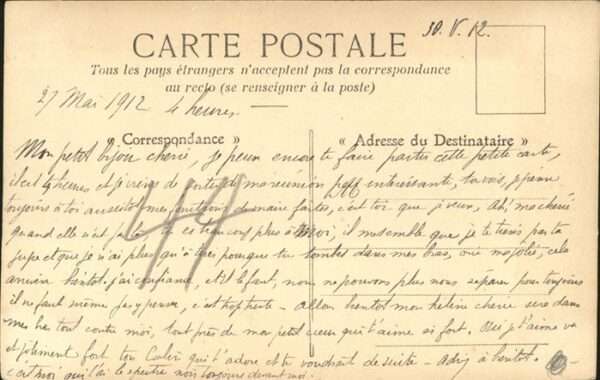 30. V. 12.
CARTE POSTALE
Tous les pays étrangers n'acceptent pas la correspondance
au recto (se renseigner à la poste)
27 Mai 1912 4 heures —
« Correspondance »
« Adresse du Destinataire »
Mon petit bijou cherie, je peux encore te faire partir cette petite carte,
il est 4 heures et je viens de sortir de ma réunion pfff intéressante, tu vois, je pense
toujours à toi aussitot mes fonctions de maire faites, c'est toi que je veux, Ah! ma cherie
quand elle n'est pas là tu es beaucoup plus à moi, il me semble que je te tiens par ta
jupe et que je n'ai plus qu'à tirer pour que tu tombes dans mes bras, oui cela
arrivera bientot. j'ai confiance, et il le faut, nous ne pouvons plus nous séparer pour toujours
il ne faut même pas y penser, c'est trop triste - Allons bientot mon hélène cherie sera dans
mes bras tout contre moi, tout près de mon petit cœur qui t'aime si fort. Oui je t'aime va
et joliment fort ton qui t'adore et te voudrait de suite - à bientot. -
44